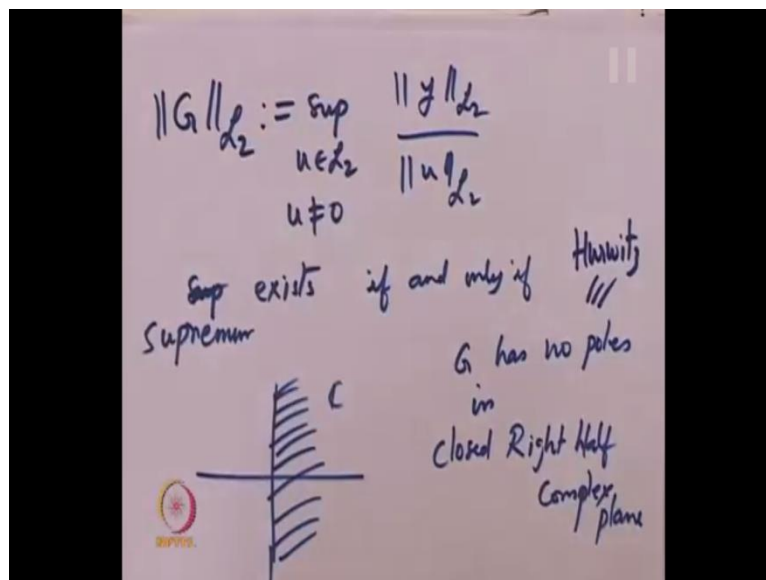 ||G||ℒ₂ := sup ||y||ℒ₂ / ||u||ℒ₂
u∈ℒ₂
u≠0
Sup exists if and only if Hurwitz
supremum
G has no poles
in
closed Right Half
complex
plane
C
NPTEL